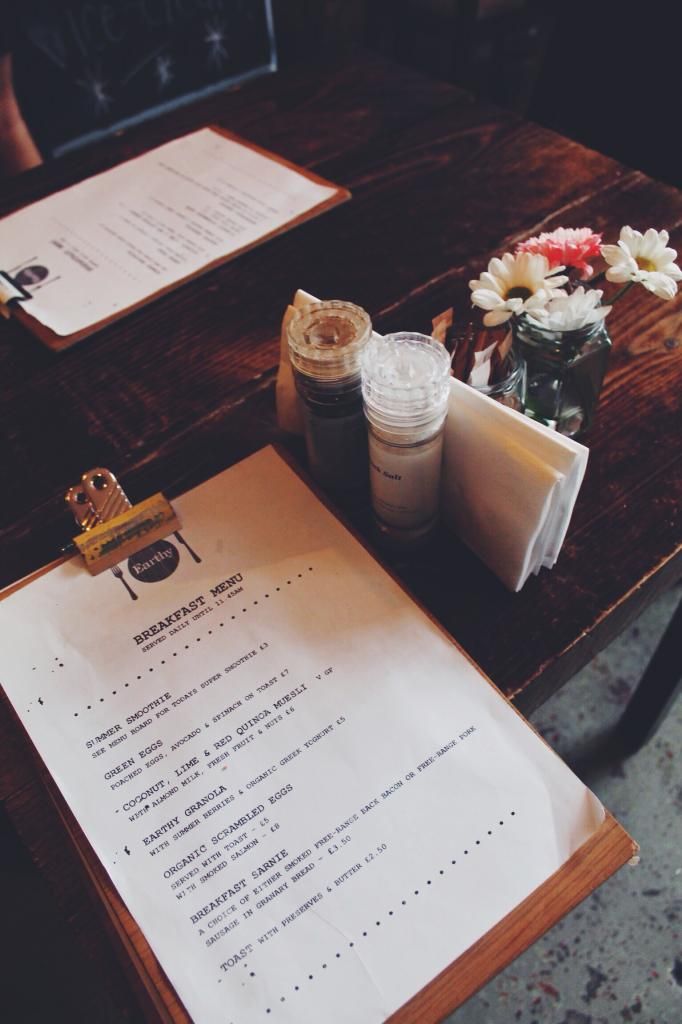 Ice-cream
Salt
Earthy
BREAKFAST MENU
SERVED DAILY UNTIL 11 45AM
SUMMER SMOOTHIE
SEE MENU BOARD FOR TODAYS SUPER SMOOTHIE £3
GREEN EGGS
POACHED EGGS, AVOCADO & SPINACH ON TOAST £7
COCONUT, LIME & RED QUINOA MUESLI V GF
WITH ALMOND MILK, FRESH FRUIT & NUTS £6
EARTHY GRANOLA
WITH SUMMER BERRIES & ORGANIC GREEK YOGHURT £5
ORGANIC SCRAMBLED EGGS
SERVED WITH TOAST - £5
WITH SMOKED SALMON - £8
BREAKFAST SARNIE
A CHOICE OF EITHER SMOKED FREE-RANGE BACK BACON OR FREE-RANGE PORK
SAUSAGE IN GRANARY BREAD - £3.50
TOAST WITH PRESERVES & BUTTER £2.50